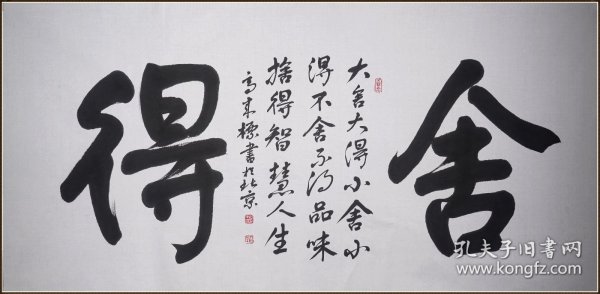 舍
大舍大得小舍小
得不舍不得品味
捨得智慧人生
高書於北京
得
孔夫子旧书网
www.kongfz.com